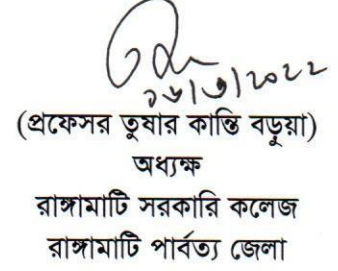 ১৬/৩/২০২২
(প্রফেসর তুষার কান্তি বড়ুয়া)
অধ্যক্ষ
রাঙ্গামাটি সরকারি কলেজ
রাঙ্গামাটি পার্বত্য জেলা